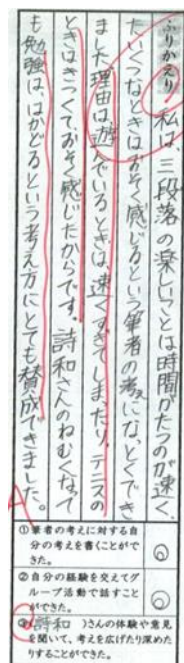 ふりかえり 私は、三段落の楽しいことは時間がたつのが速く、
たいくつなときはおそく感じるという筆者の考えになっとくでき
ました。理由は、遊んでいるときは、速くすぎてしまったり、テニスの
ときはきつくて、おそく感じたからです。詩和さんのねむくなって
も勉強は、はかどるという考え方にとても賛成できました。
A
①筆者の考えに対する自
分の考えを書くことがで
きた。
◎
②自分の経験を交えてグ
ループ活動で話すこと
ができた。
◎
③(詩和)さんの体験や意見
を聞いて、考えを広げたり深めた
りすることができた。